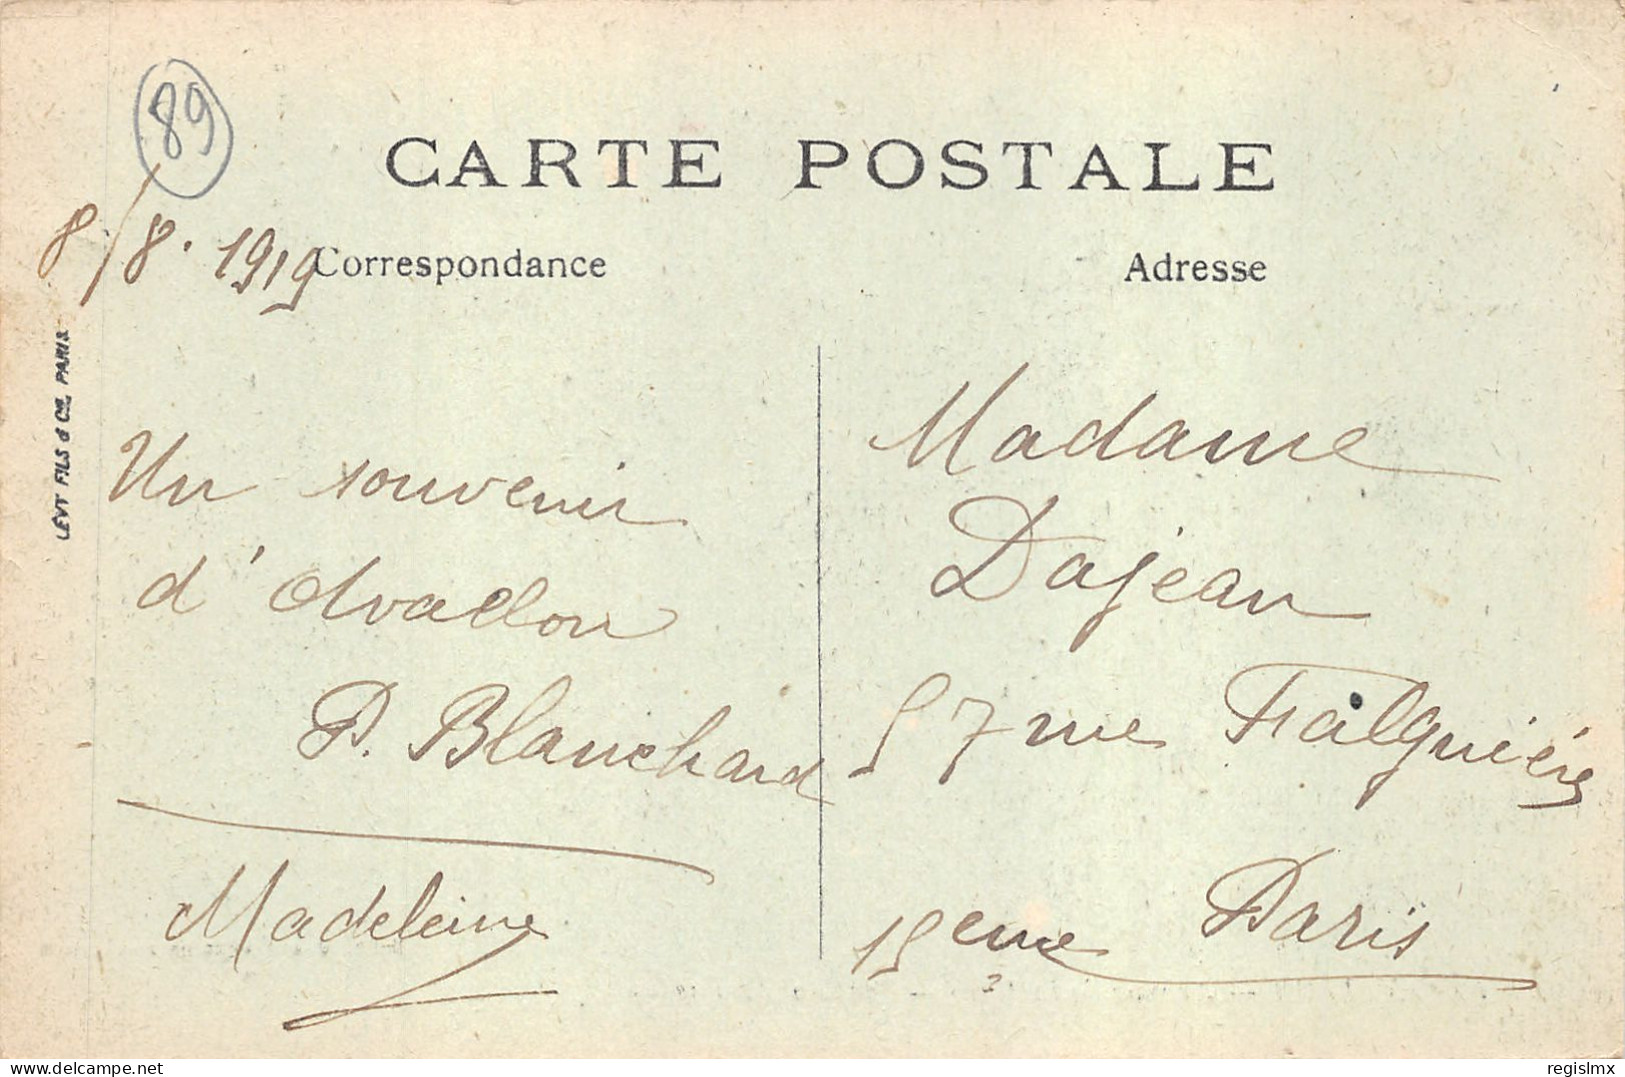 89
CARTE POSTALE
8/8. 1919
Correspondance
Adresse
LEVY FILS & Cie PARIS
Un souvenir
d'Avallon
P. Blanchard
Madeleine
Madame
Dajean
57 rue Falguière
15eme Paris
delcampe.net
regislmx